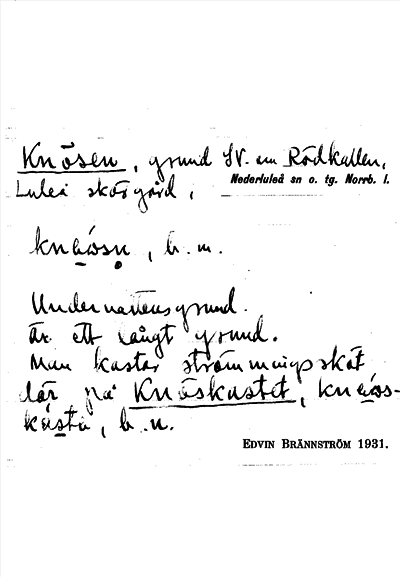 Knösen, grund SV. om Rödkallen,
Luleå skärgård,
Nederluleå sn o. tg. Norrb. l.
knäǫsn̥, b. m.
Undervattensgrund.
är ett långt grund.
Man kastar strömmingssköt
där på Knöskastet, knäǫs-
kásta, b. n.
EDVIN BRÄNNSTRÖM 1931.